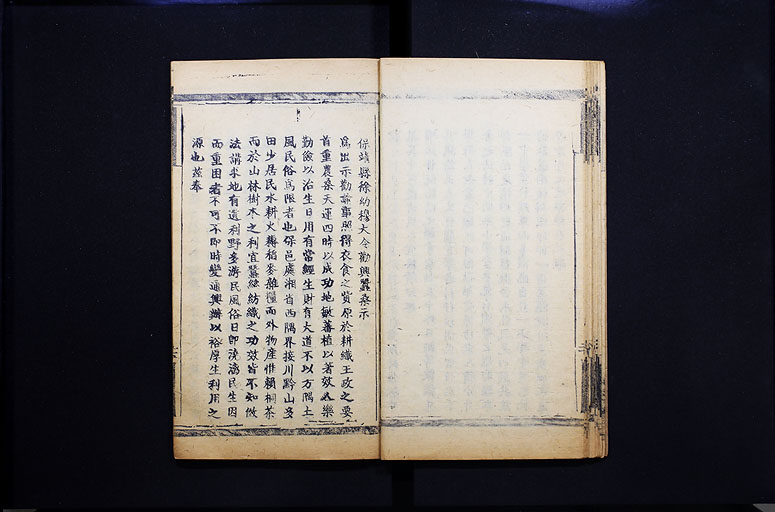 保靖縣徐幼穆大令勸興蠶桑示
爲出示勸諭事照得衣食之貲原於耕織王政之要
首重農桑天運四時以成功地敏蕃植以著效必樂
勤儉以治生日用有常經生財有大道不以方隅土
風民俗爲限者也保邑處湘省西隅界接川黔山多
田少居民水耕火耨稻麥雜糧而外物產惟賴桐茶
而於山林樹木之利宜蠶繰紡織之功效皆不知倣
法講求地有遺利野多游民風俗日即澆漓民生因
而重困者不可不即時變通興辦以裕厚生利用之
源也茲奉